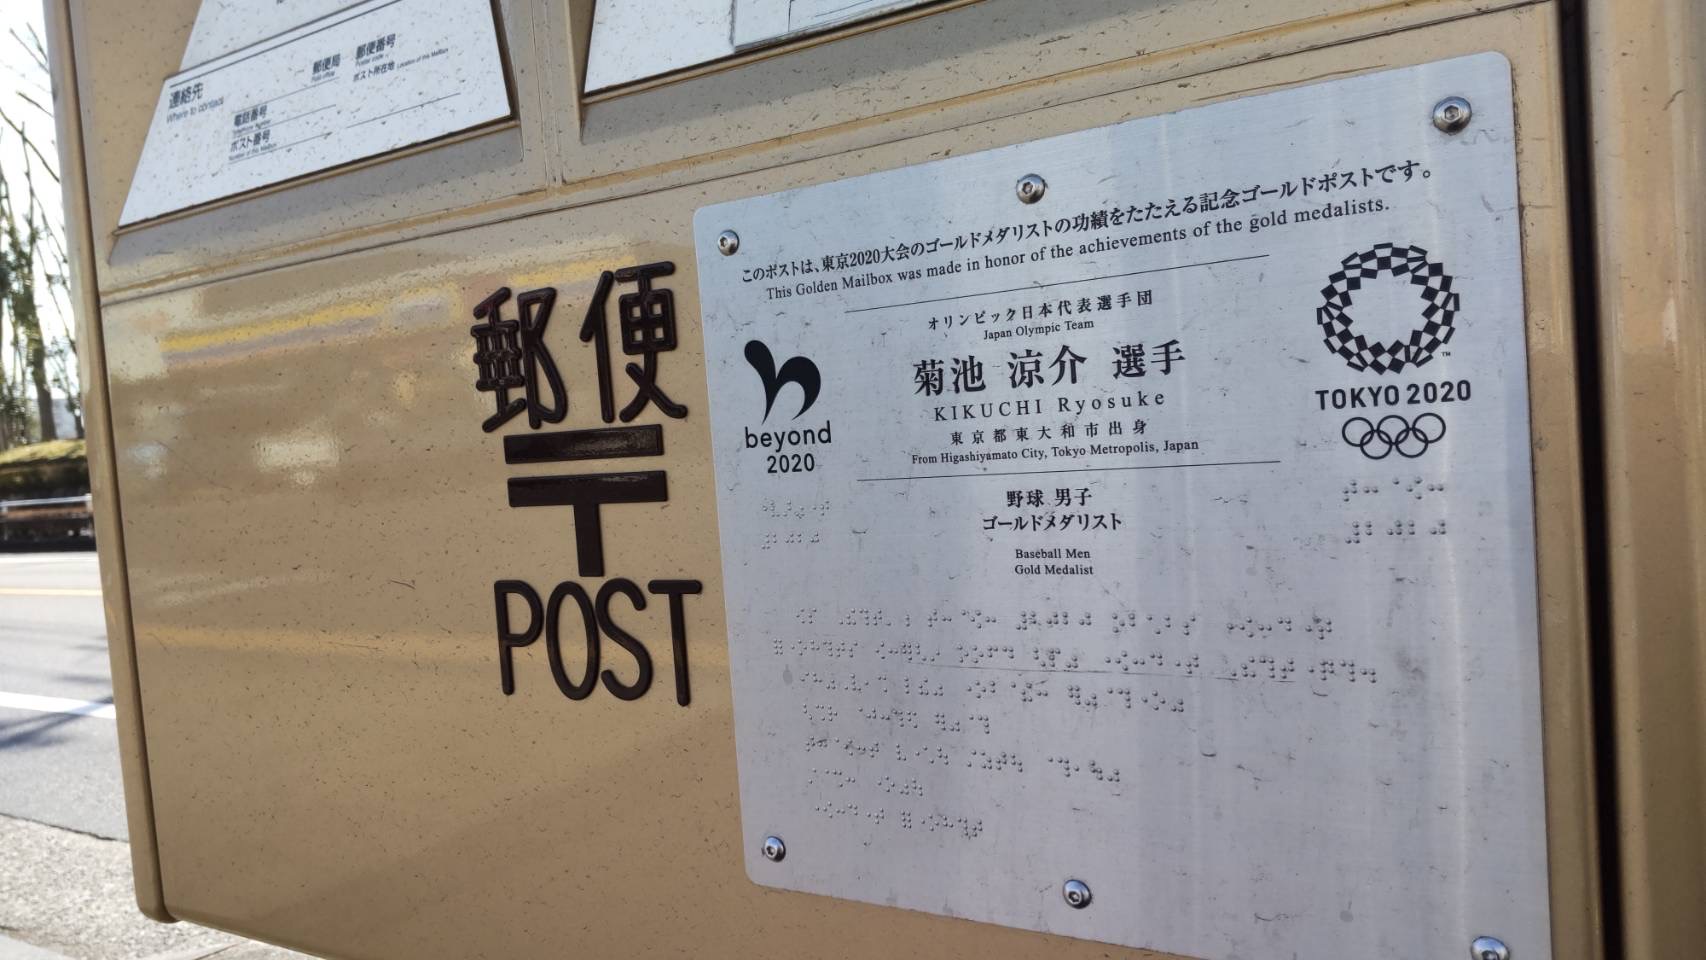 連絡先
Where to contact
郵便局
Post office
郵便番号
ポスト所在地 Location of this Mailbox
電話番号
Telephone Number
ポスト番号
Number of this Mailbox
郵便
〒
POST
このポストは、東京2020大会のゴールドメダリストの功績をたたえる記念ゴールドポストです。
This Golden Mailbox was made in honor of the achievements of the gold medalists.
オリンピック日本代表選手団
Japan Olympic Team
菊池 涼介 選手
KIKUCHI Ryosuke
東京都東大和市出身
From Higashiyamato City, Tokyo Metropolis, Japan
野球 男子
ゴールドメダリスト
Baseball Men
Gold Medalist
beyond
2020
TOKYO 2020